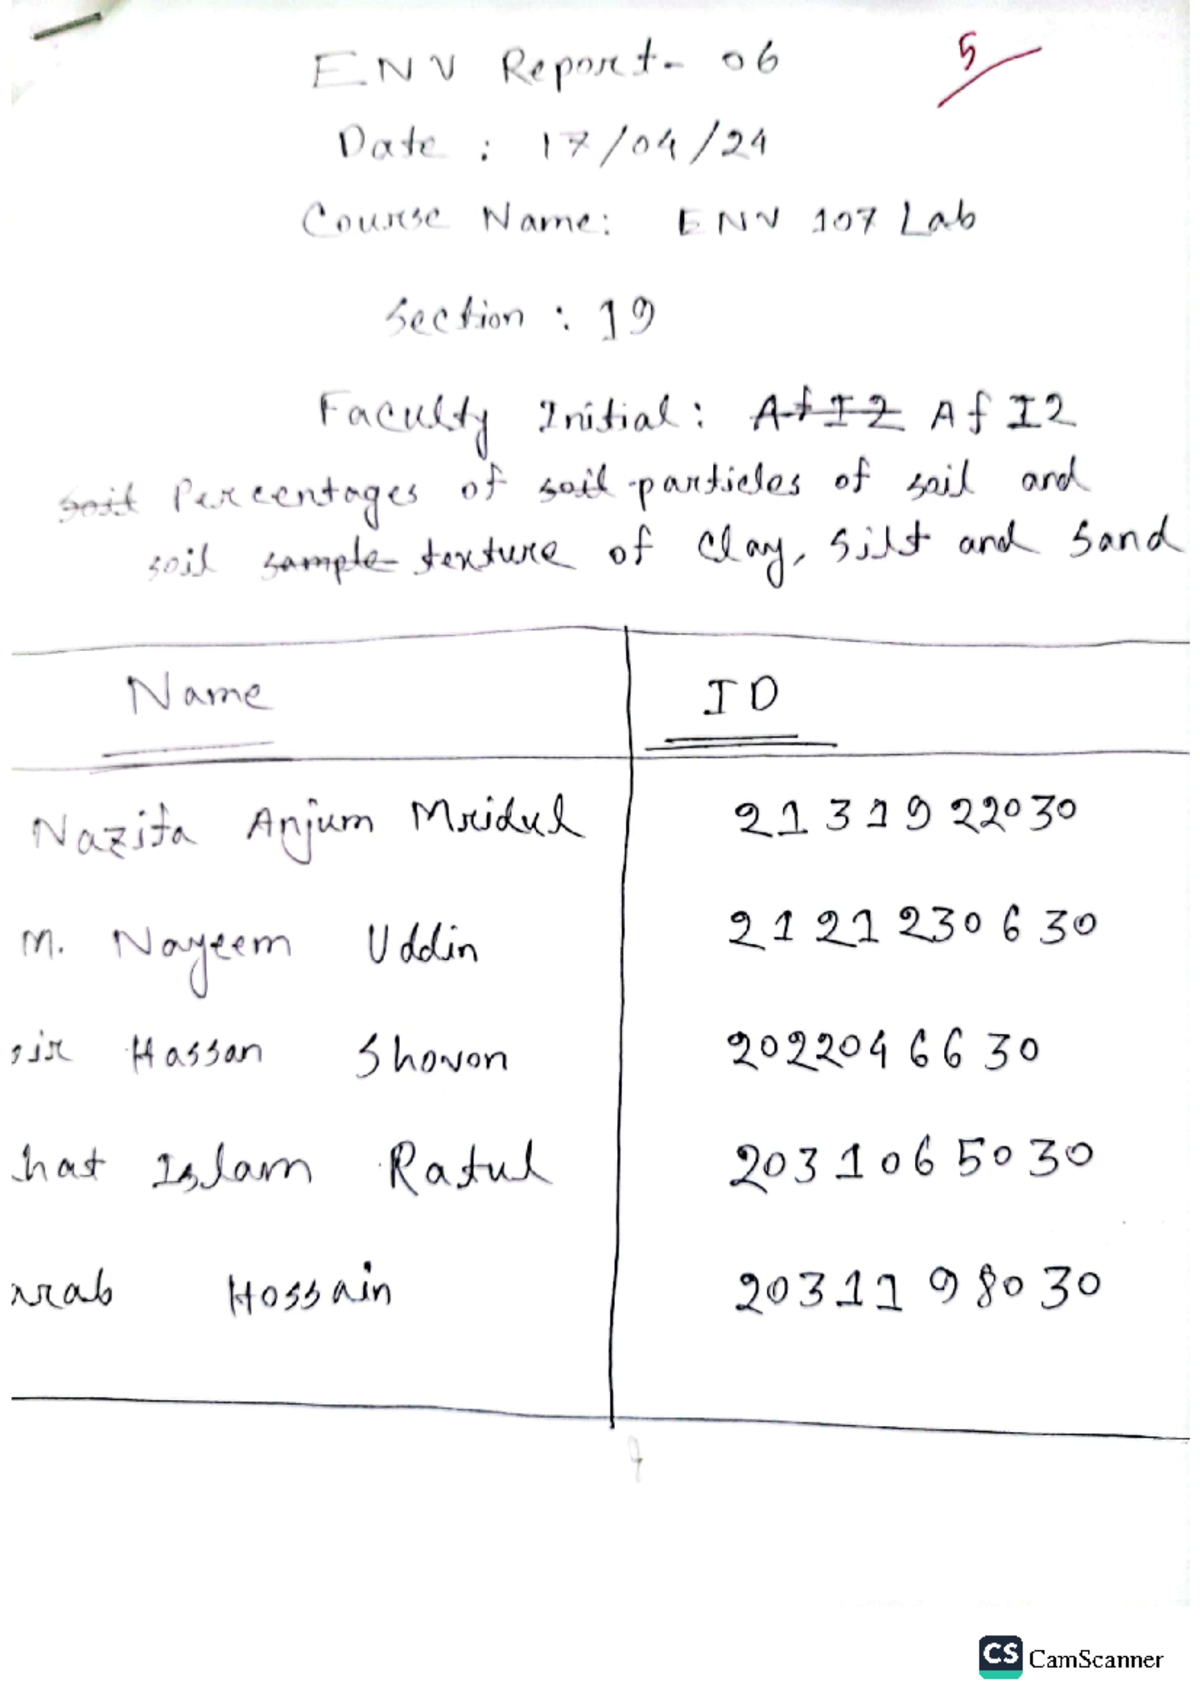 ENV Report- 06
5
Date : 17/04/24
Course Name: ENV 107 Lab
Section : 19
Faculty Initial: AfIZ AfIZ
soil Percentages of soil particles of soil and
soil sample texture of clay, silt and sand
Name
ID
Nazifa Anjum Mridul
2131922030
M. Nayeem Uddin
2121230630
sir Hassan Shovon
2022046630
hat Islam Ratul
2031065030
arab Hossain
2031198030
CS CamScanner